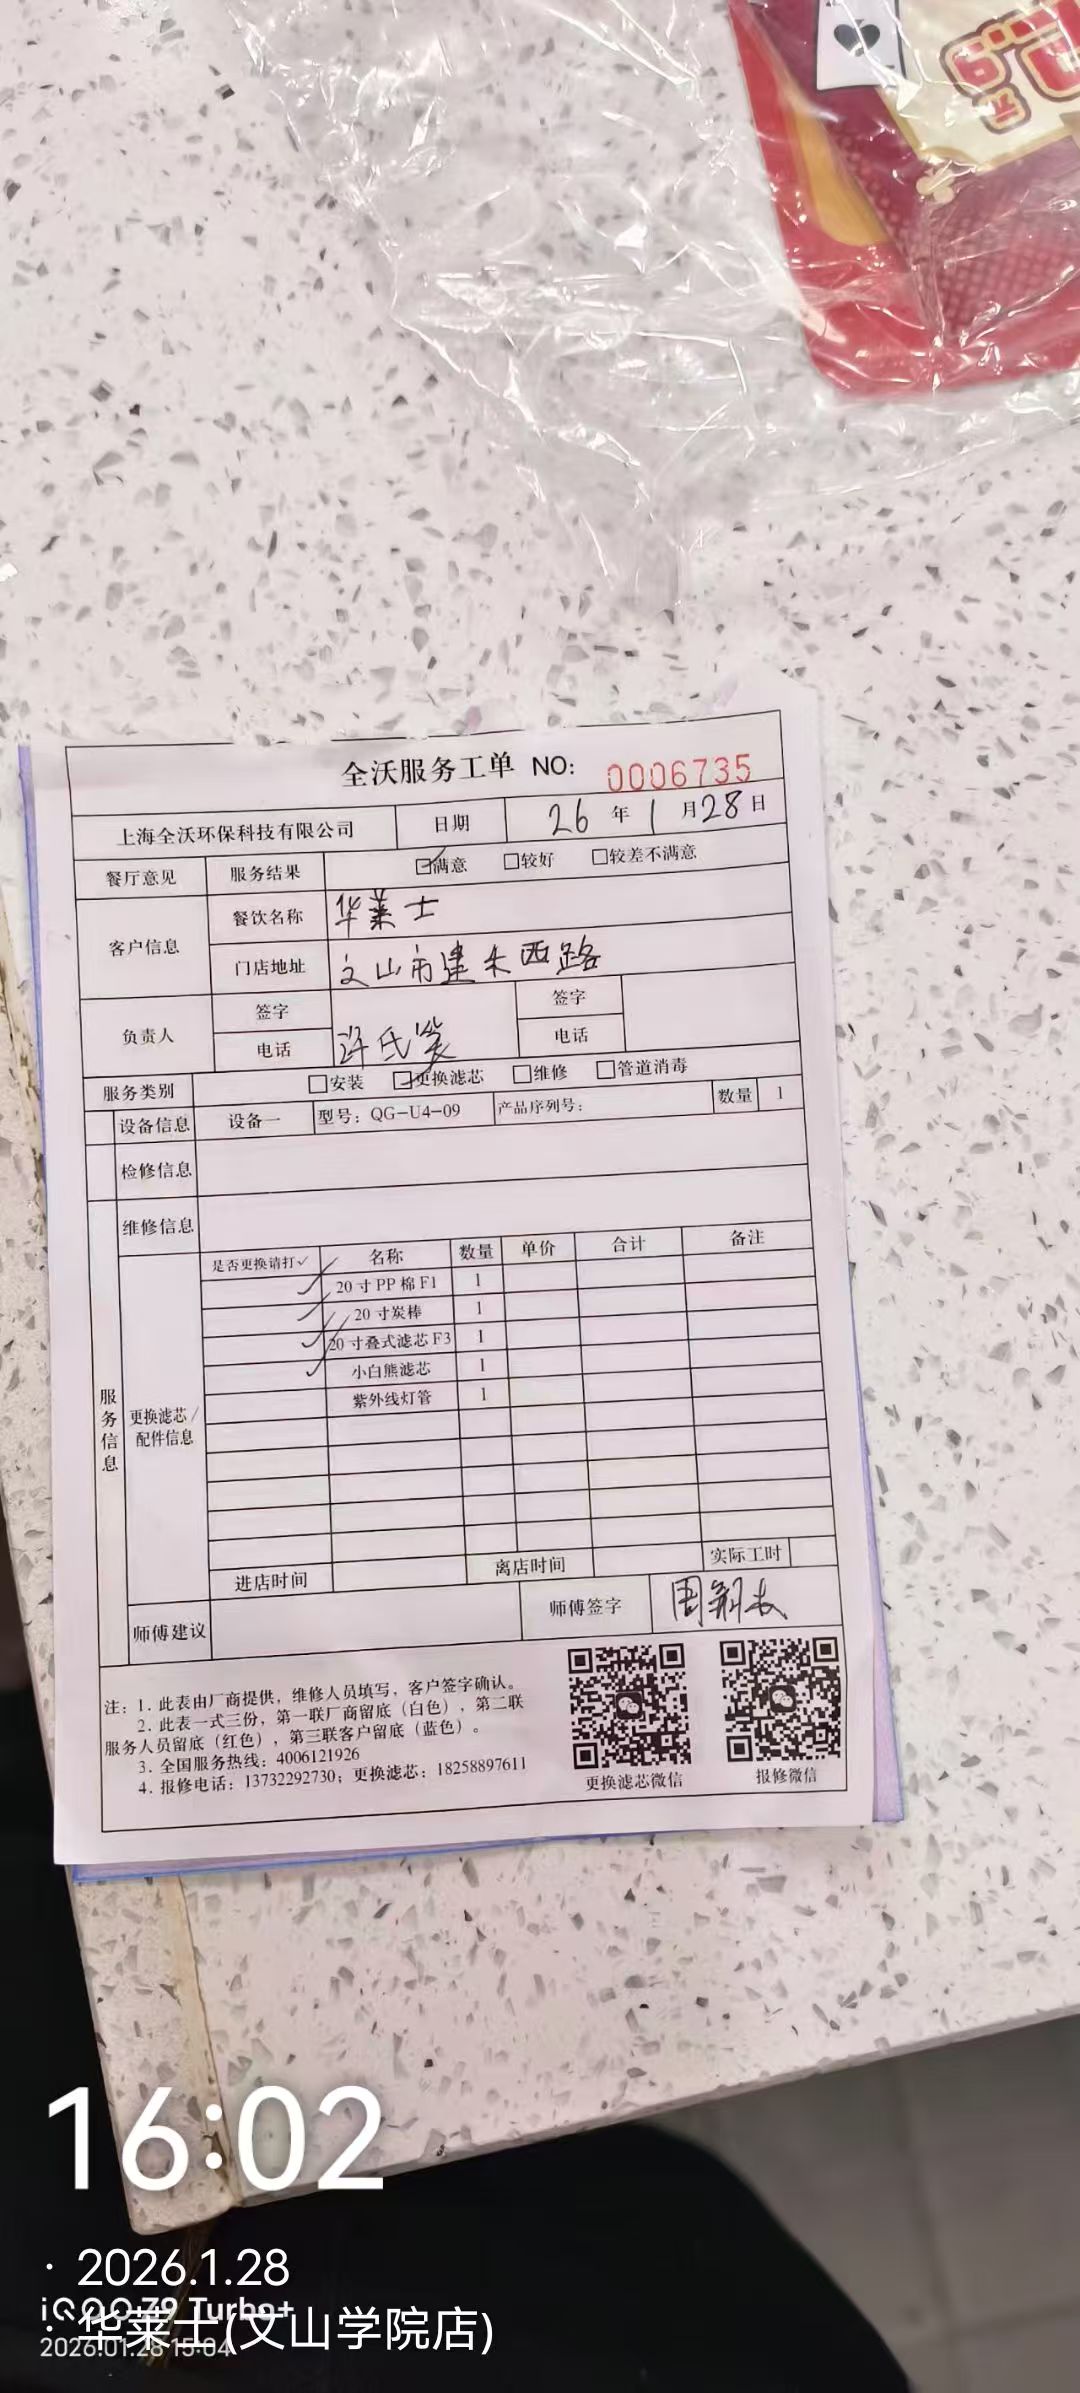 全沃服务工单 NO: 0006735
上海全沃环保科技有限公司 日期 26 年 1 月 28 日
餐厅意见 服务结果 ☑满意 □较好 □较差不满意
客户信息 餐饮名称 华莱士
门店地址 文山市建禾西路
负责人 签字 签字
电话 许氏 电话
服务类别 □安装 ☑更换滤芯 □维修 □管道消毒
设备信息 设备一 型号：QG-U4-09 产品序列号： 数量 1
检修信息
维修信息
服务信息
更换滤芯/配件信息
是否更换请打✓ 名称 数量 单价 合计 备注
✓ 20寸PP棉F1 1
✓ 20寸炭棒 1
✓ 20寸叠式滤芯F3 1
✓ 小白熊滤芯 1
紫外线灯管 1
进店时间 离店时间 实际工时
师傅建议 师傅签字 周
注：1. 此表由厂商提供，维修人员填写，客户签字确认。
2. 此表一式三份，第一联厂商留底（白色），第二联
服务人员留底（红色），第三联客户留底（蓝色）。
3. 全国服务热线：4006121926
4. 报修电话：13732292730；更换滤芯：18258897611
更换滤芯微信 报修微信
16:02
· 2026.1.28
iQOO Z9 Turbo+
· 华莱士(文山学院店)
2026.01.28 15:04